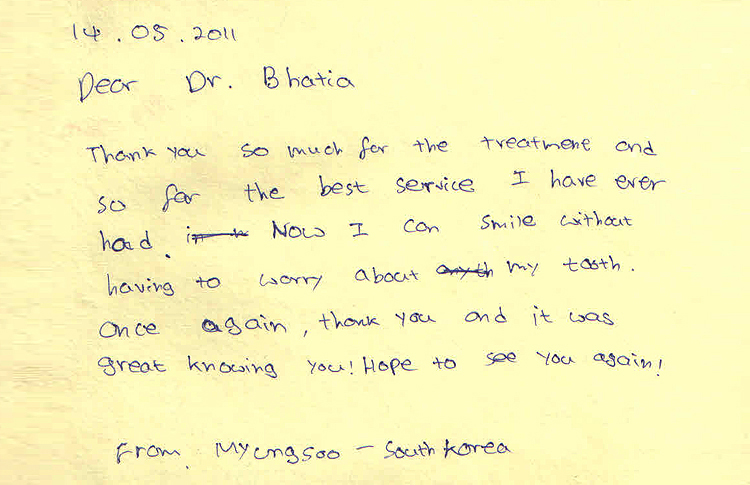 14.05.2011
Dear Dr. Bhatia
Thank you so much for the treatment and
so far the best service I have ever
had. Now I can smile without
having to worry about my tooth.
Once again, thank you and it was
great knowing you! Hope to see you again!
From. Myungsoo - South Korea